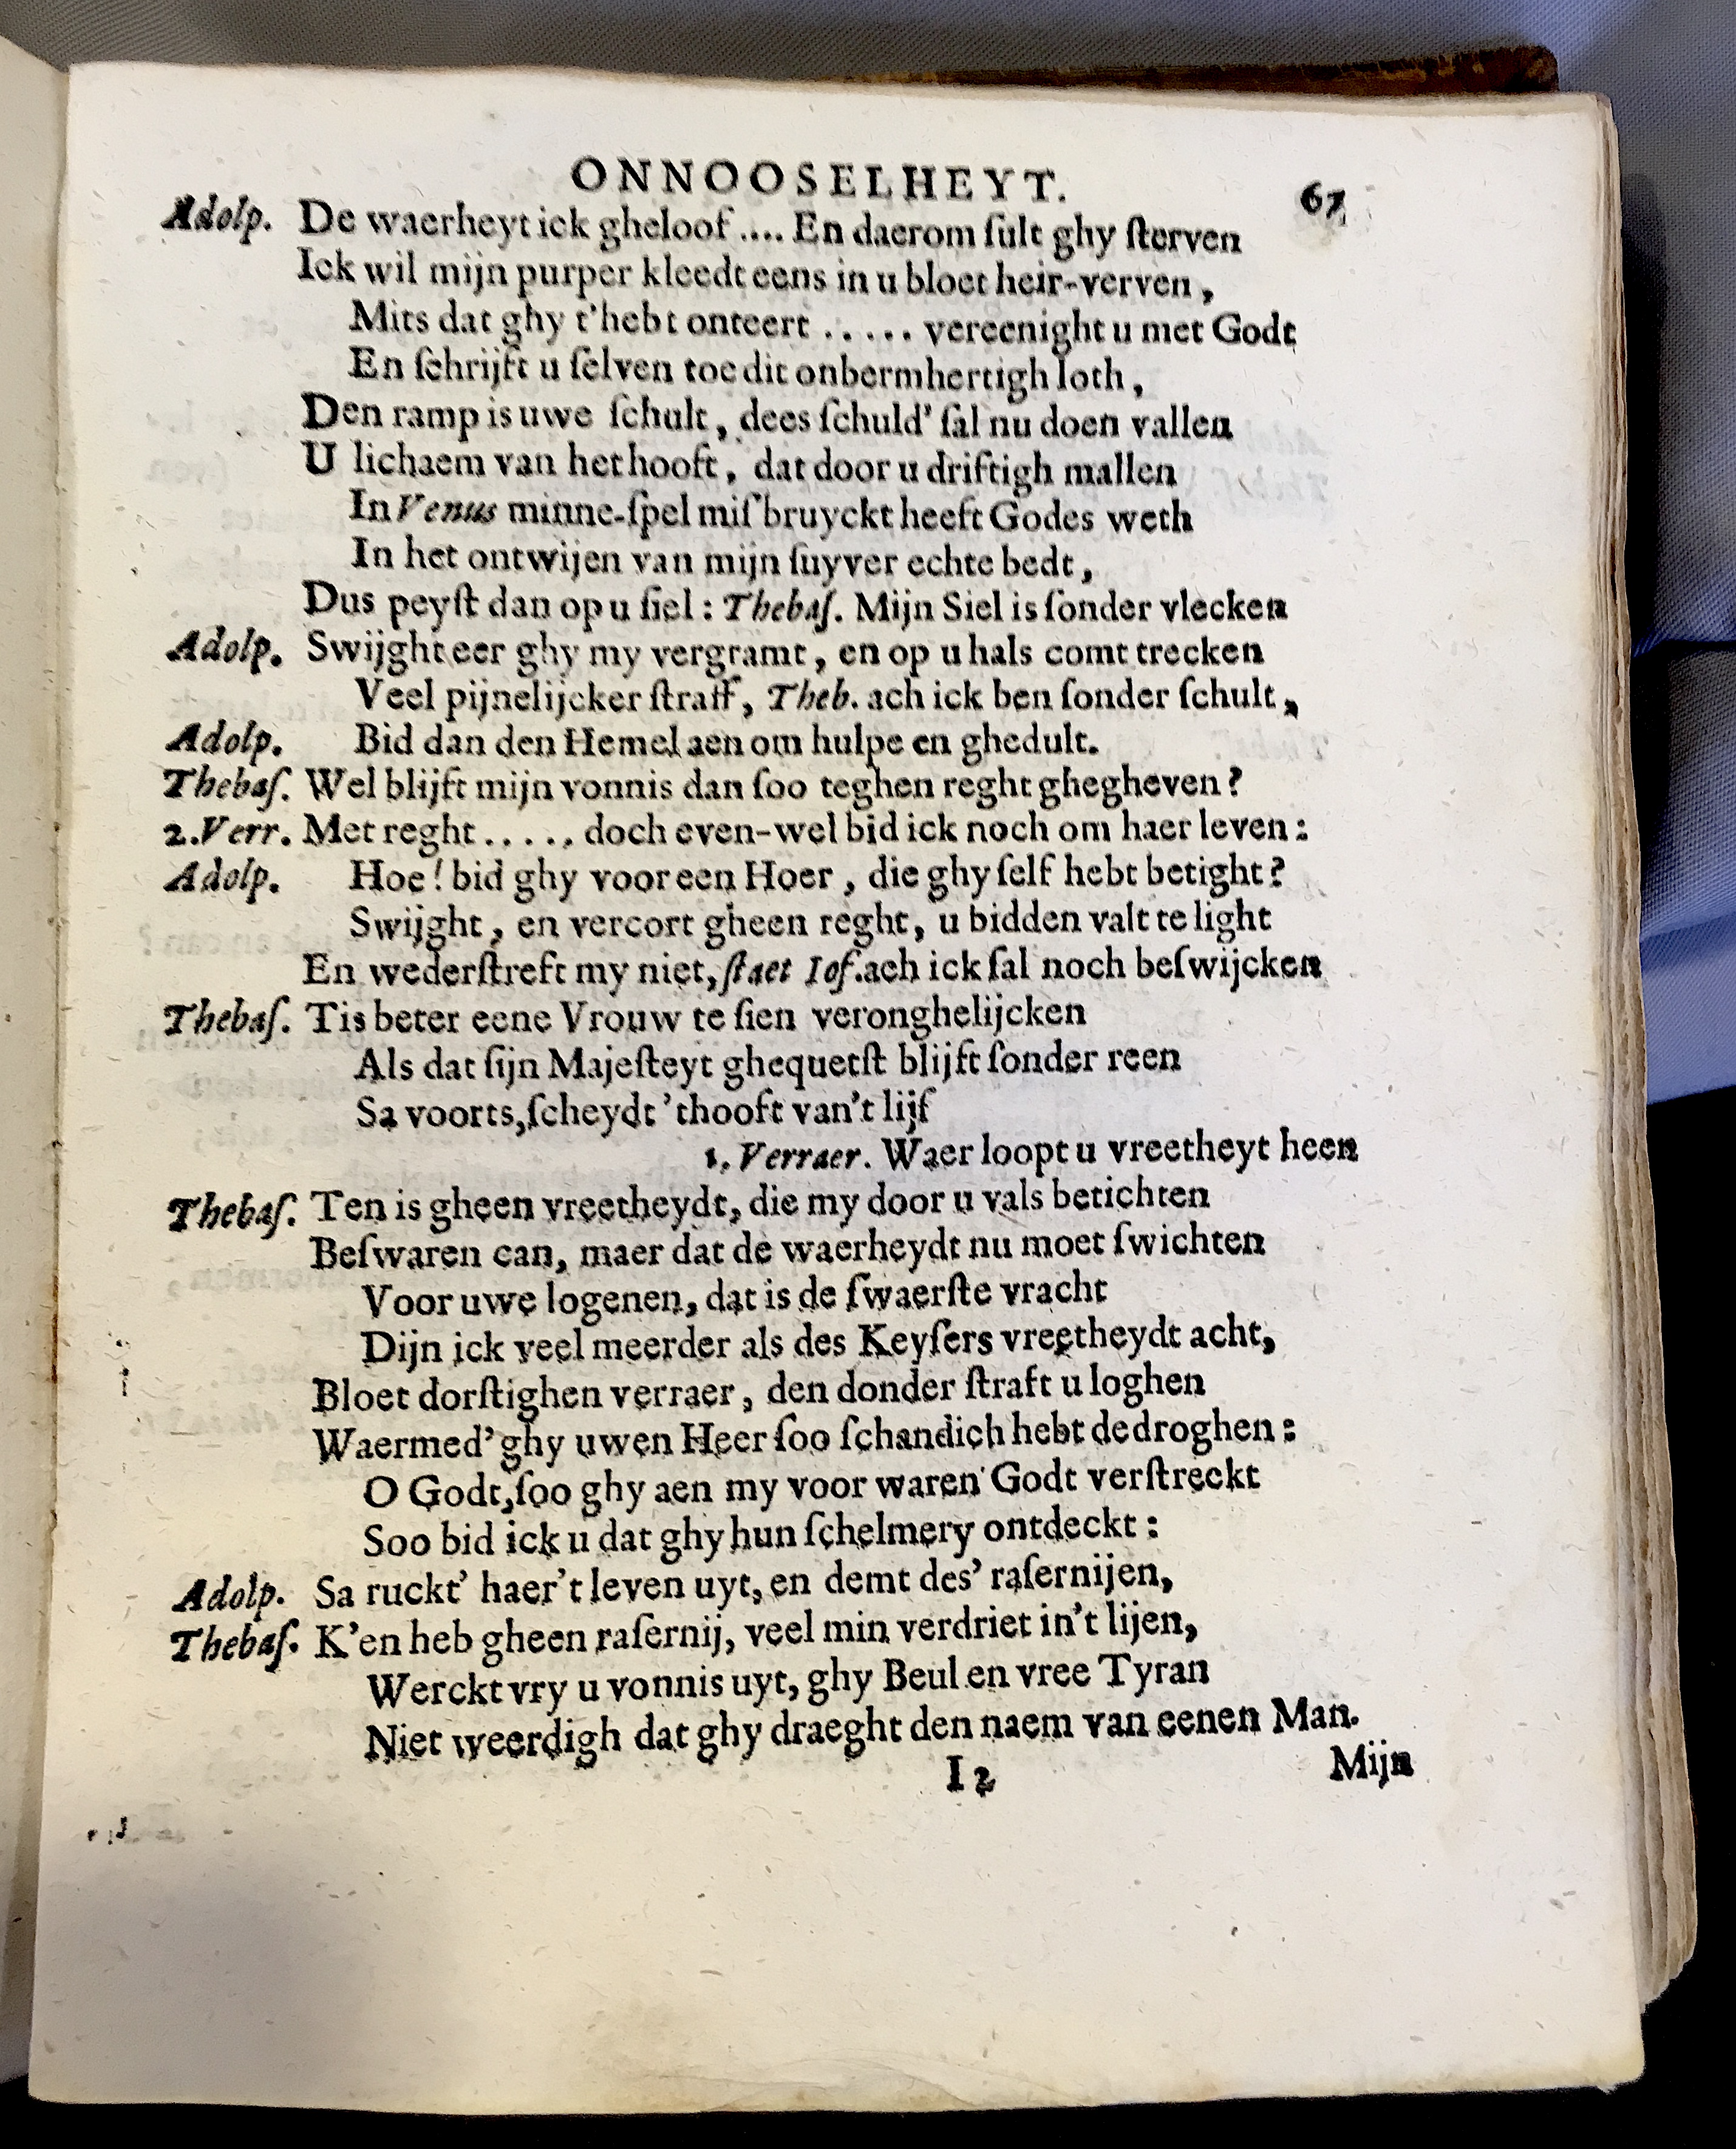 ONNOOSELHEYT. 67
Adolp. De waerheyt ick gheloof .... En daerom ſult ghy ſterven
Ick wil mijn purper kleedt eens in u bloet heir-verven,
Mits dat ghy t'hebt onteert ..... vereenight u met Godt
En ſchrijft u ſelven toe dit onbermhertigh loth,
Den ramp is uwe ſchult, dees ſchuld' ſal nu doen vallen
U lichaem van het hooft, dat door u driftigh mallen
In Venus minne-ſpel miſbruyckt heeft Godes weth
In het ontwijen van mijn ſuyver echte bedt,
Dus peyſt dan op u ſiel: Thebaſ. Mijn Siel is ſonder vlecken
Adolp. Swijght eer ghy my vergramt, en op u hals comt trecken
Veel pijnelijcker ſtraff, Theb. ach ick ben ſonder ſchult,
Adolp. Bid dan den Hemel aen om hulpe en ghedult.
Thebaſ. Wel blijft mijn vonnis dan ſoo teghen reght ghegheven?
2. Verr. Met reght ..... doch even-wel bid ick noch om haer leven:
Adolp. Hoe! bid ghy voor een Hoer, die ghy ſelf hebt betight?
Swijght, en vercort gheen reght, u bidden valt te light
En wederſtreft my niet, ſtaet Ioſ. ach ick ſal noch beſwijcken
Thebaſ. Tis beter eene Vrouw te ſien veronghelijcken
Als dat ſijn Majeſteyt ghequetſt blijft ſonder reen
Sa voorts, ſcheydt 'thooft van't lijf
1. Verraer. Waer loopt u vreetheyt heen
Thebaſ. Ten is gheen vreetheydt, die my door u vals betichten
Beſwaren can, maer dat de waerheydt nu moet ſwichten
Voor uwe logenen, dat is de ſwaerſte vracht
Dijn ick veel meerder als des Keyſers vreetheydt acht,
Bloet dorſtighen verraer, den donder ſtraft u loghen
Waermed' ghy uwen Heer ſoo ſchandich hebt dedroghen:
O Godt, ſoo ghy aen my voor waren Godt verſtreckt
Soo bid ick u dat ghy hun ſchelmery ontdeckt:
Adolp. Sa ruckt' haer't leven uyt, en demt des' raſernijen,
Thebaſ. K'en heb gheen raſernij, veel min verdriet in't lijen,
Werckt vry u vonnis uyt, ghy Beul en vree Tyran
Niet weerdigh dat ghy draeght den naem van eenen Man.
I 2 Mijn